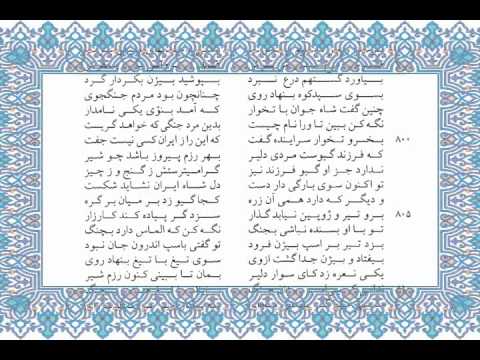 بیاورد گستهم درع نبرد بپوشید بیژن بکردار گرد
بسوی سپدکوه بنهاد روی چنانچون بود مردم جنگجوی
چنین گفت شاه جوان با تخوار که آمد بنوّی یکی نامدار
نگه کن ببین تا ورا نام چیست بدین مرد جنگی که خواهد گریست
۸۰۰ بخسرو تخوار سراینده گفت که این را ز ایران کسی نیست جفت
که فرزند گیوست مردی دلیر بهر رزم پیروز باشد چو شیر
ندارد جز او گیو فرزند نیز گرامیترستش ز گنج و ز چیز
تو اکنون سوی بارگی دار دست دل شاه ایران نشاید شکست
و دیگر که دارد همی آن زره کجا گیو زد بر میان بر گره
۸۰۵ برو تیر و ژوپین نیابد گذار سزد گر پیاده کند کارزار
تو با او بسنده نباشی بجنگ نگه کن که الماس دارد بچنگ
بزد تیر بر اسپ بیژن فرود تو گفتی باسپ اندرون جان نبود
بیفتاد و بیژن جدا گشت ازوی سوی تیغ با تیغ بنهاد روی
یکی نعره زد کای سوار دلیر بمان تا ببینی کنون رزم شیر